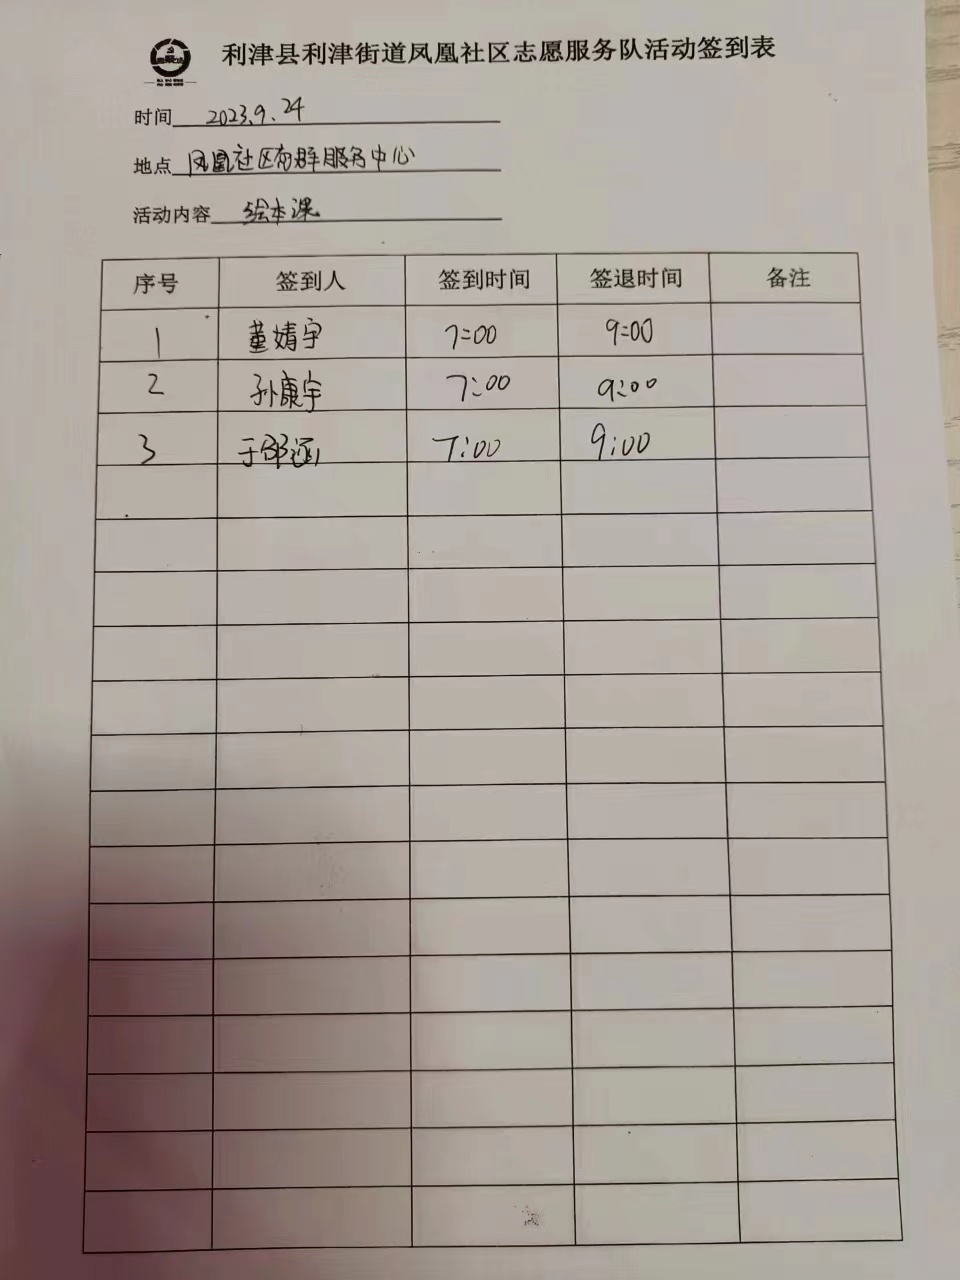 利津县利津街道凤凰社区志愿服务队活动签到表
时间 2023.9.24
地点 凤凰社区党群服务中心
活动内容 绘本课
序号 签到人 签到时间 签退时间 备注
1 董婧宇 7:00 9:00
2 孙康宇 7:00 9:00
3 于邵涵 7:00 9:00